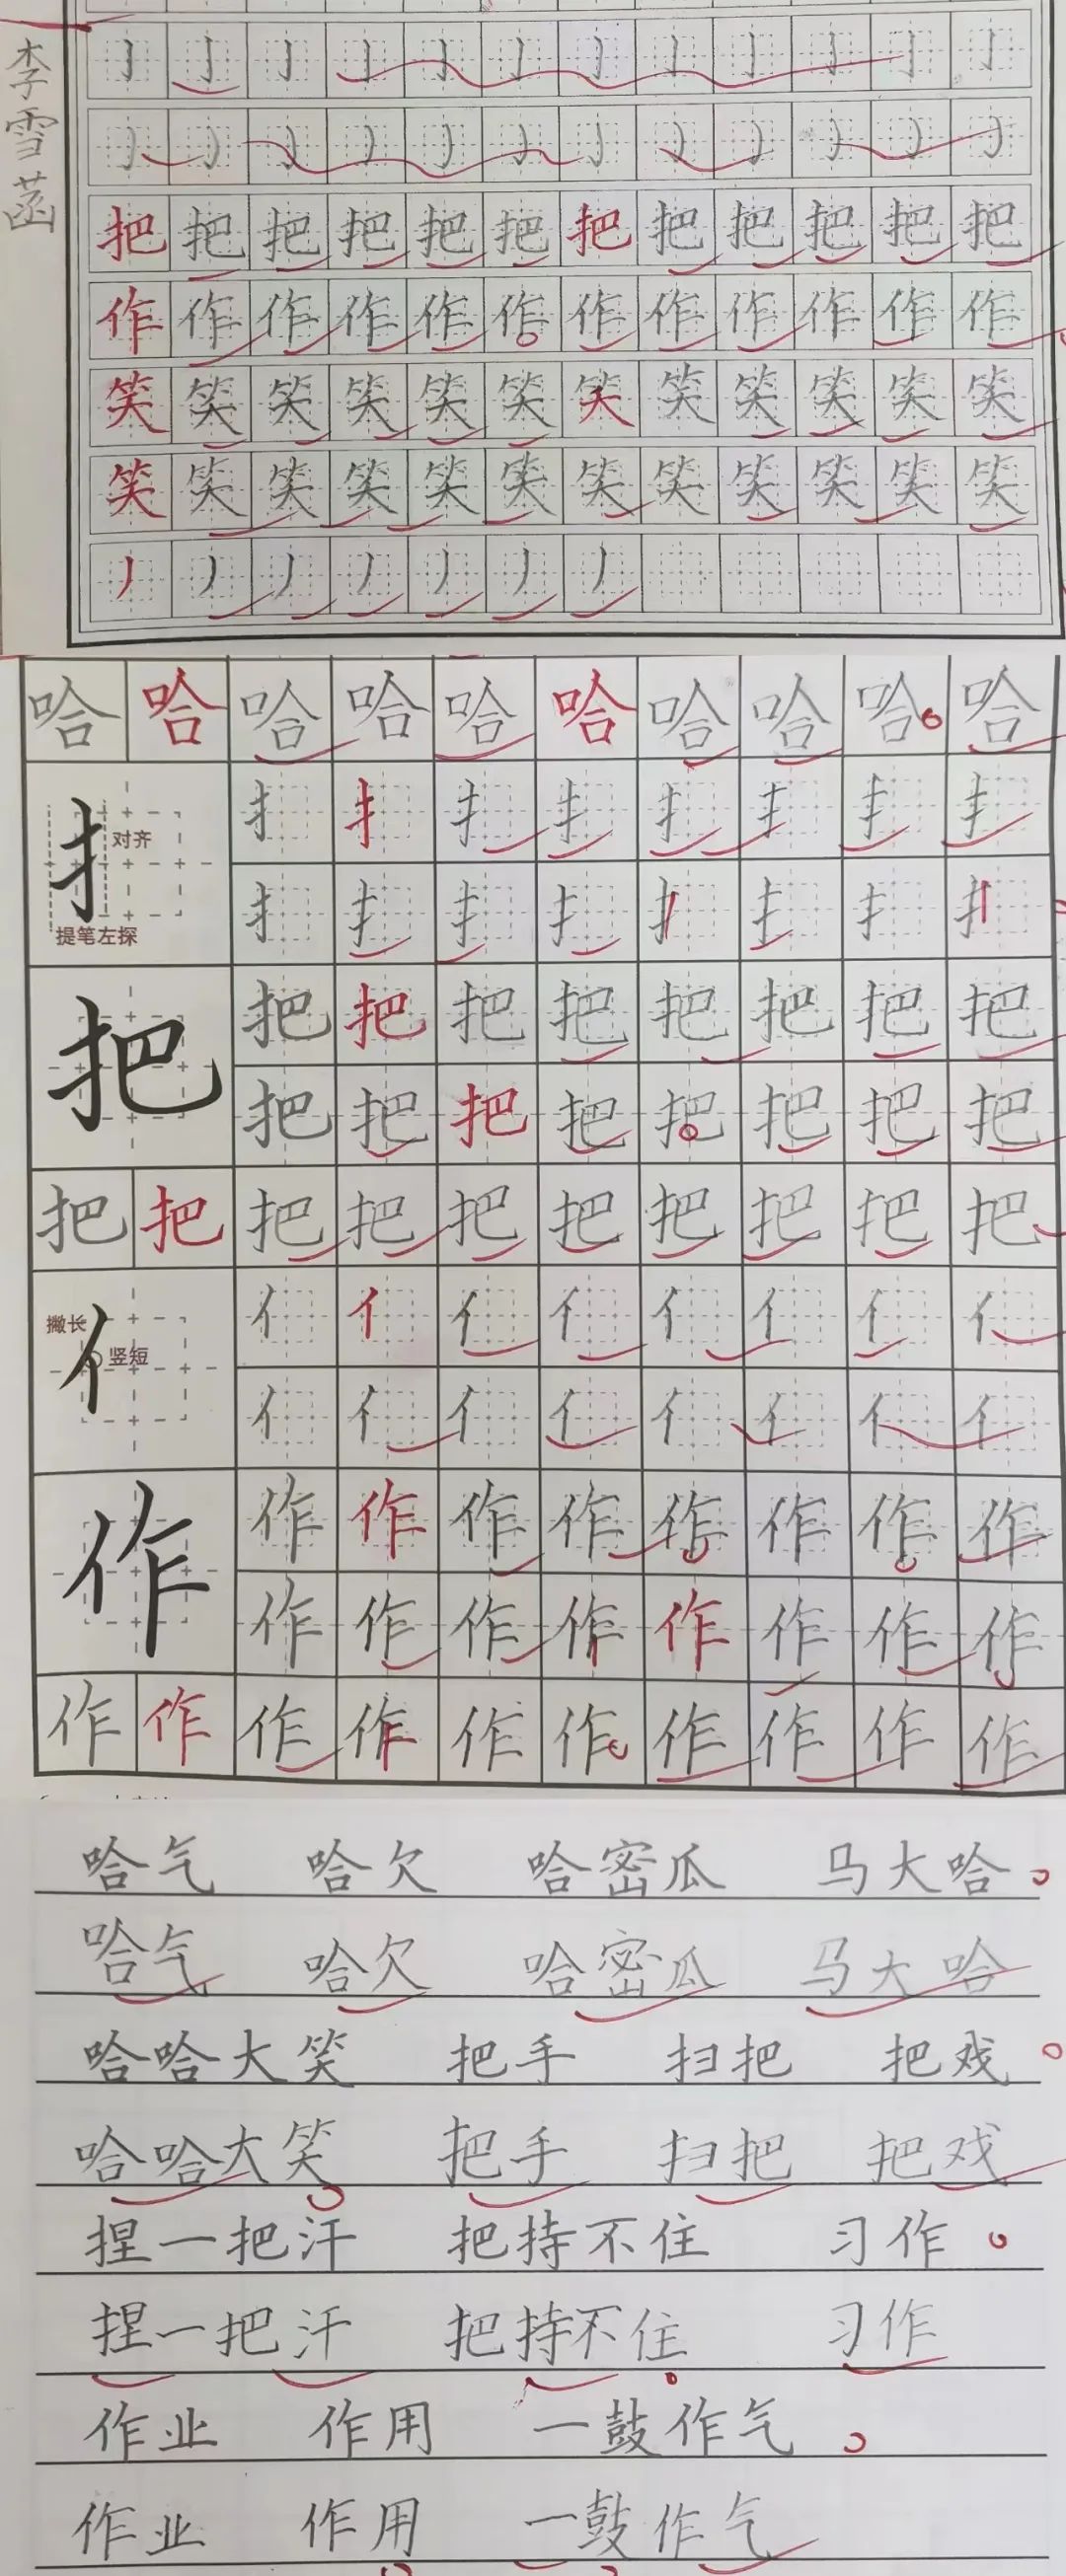 李雪菡
亅 亅 亅 亅 亅 亅 亅 亅 亅 亅 亅 亅
丿 丿 丿 丿 丿 丿 丿 丿 丿 丿 丿 丿
把 把 把 把 把 把 把 把 把 把 把 把
作 作 作 作 作 作 作 作 作 作 作 作
笑 笑 笑 笑 笑 笑 笑 笑 笑 笑 笑 笑
笑 笑 笑 笑 笑 笑 笑 笑 笑 笑 笑 笑
丿 丿 丿 丿 丿 丿 丿
哈 哈 哈 哈 哈 哈 哈 哈 哈 哈
扌 对齐 提笔左探
扌 扌 扌 扌 扌 扌 扌 扌
扌 扌 扌 扌 扌 扌 扌 扌
把
把 把 把 把 把 把 把 把
把 把 把 把 把 把 把 把
把 把 把 把 把 把 把 把 把 把
亻 撇长 竖短
亻 亻 亻 亻 亻 亻 亻 亻
亻 亻 亻 亻 亻 亻 亻 亻
作
作 作 作 作 作 作 作 作
作 作 作 作 作 作 作 作
作 作 作 作 作 作 作 作 作 作
哈气 哈欠 哈密瓜 马大哈
哈气 哈欠 哈密瓜 马大哈
哈哈大笑 把手 扫把 把戏
哈哈大笑 把手 扫把 把戏
捏一把汗 把持不住 习作
捏一把汗 把持不住 习作
作业 作用 一鼓作气
作业 作用 一鼓作气